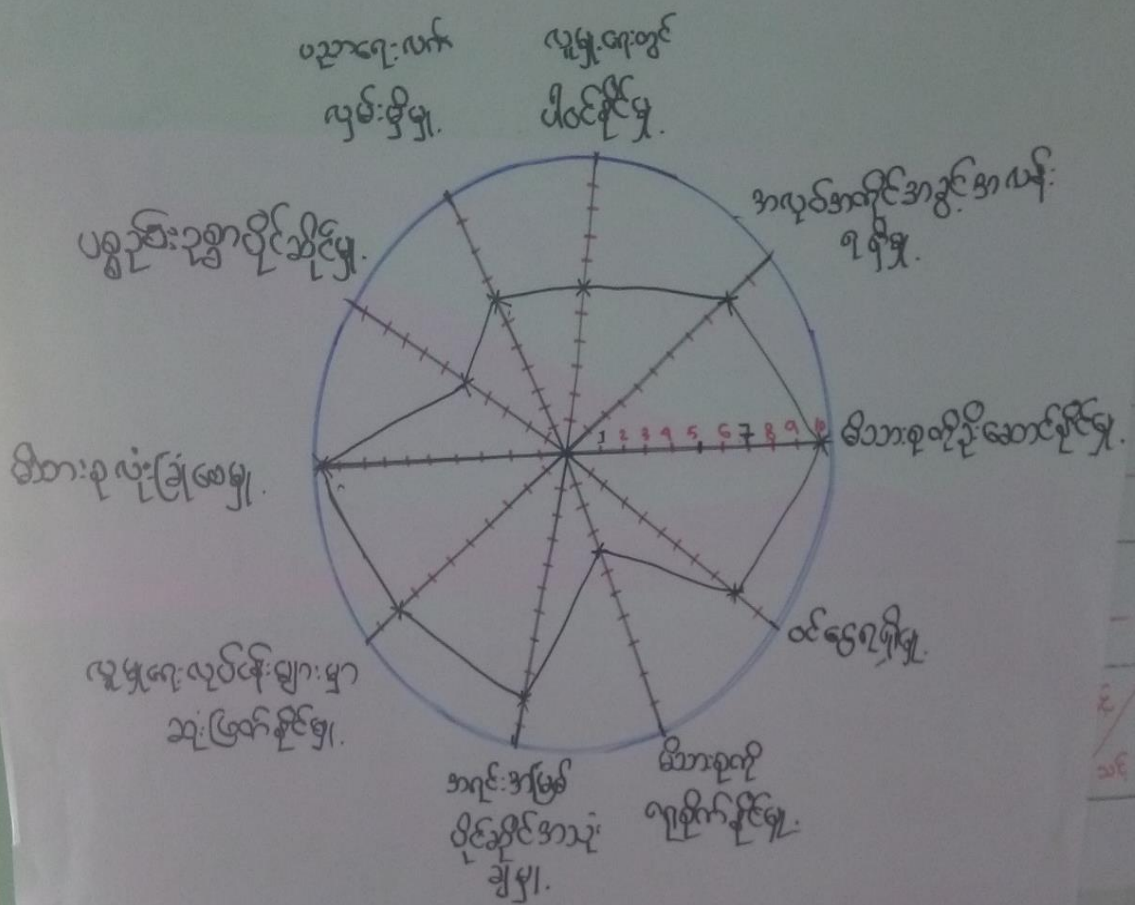 ပညာရေး လက်
လှမ်းမှီမှု.
လူမှုရေးတွင်
ပါဝင်နိုင်မှု.
အလုပ်အကိုင်အခွင့်အလန်း
ရရှိမှု.
ပစ္စည်းဥစ္စာပိုင်ဆိုင်မှု.
1 2 3 4 5 6 7 8 9 10
မိသားစုကိုဦးဆောင်နိုင်မှု.
မိသားစုလုံးခြုံစေမှု.
ဝင်ငွေရရှိမှု.
လူမှုရေးလုပ်ငန်းများမှာ
ဆုံးဖြတ်နိုင်မှု.
အရင်းအမြစ်
ပိုင်ဆိုင်အသုံး
ချမှု.
မိသားစုကို
ရှာစိုက်နိုင်မှု.
သင်